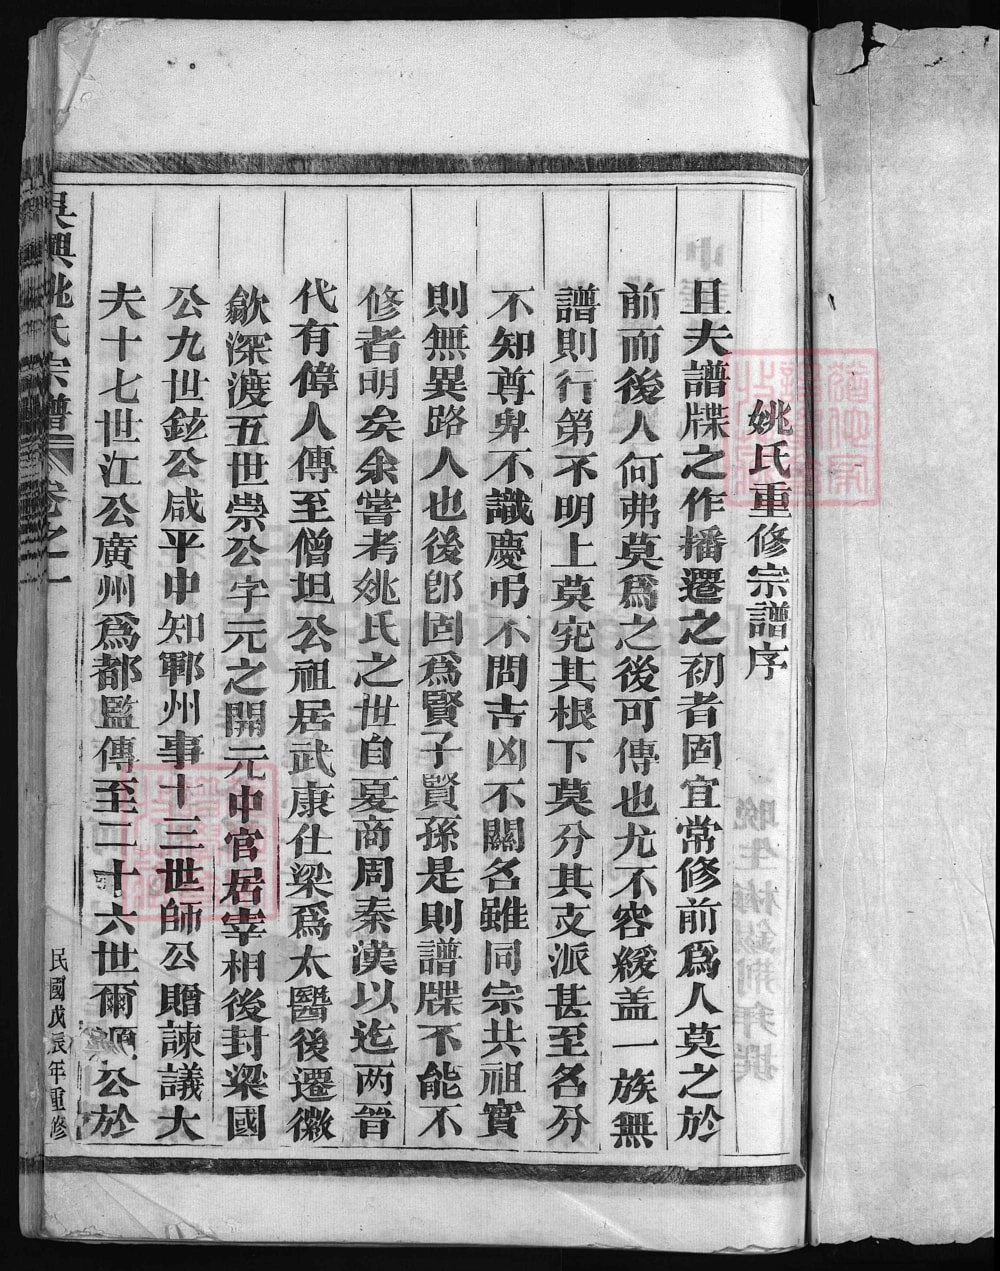 姚氏重修宗譜序
且夫譜牒之作播遷之初者固宜常修前爲人莫之於
前而後人何弗莫爲之後可傳也尤不容緩盖一族無
譜則行第不明上莫究其根下莫分其支派甚至名分
不知尊卑不識慶弔不問吉凶不關名雖同宗共祖實
則無異路人也後卽固爲賢子賢孫是則譜牒不能不
修者明矣余嘗考姚氏之世自夏商周秦漢以迄两晉
代有偉人傳至僧坦公祖居武康仕梁爲太醫後遷徽
歙深渡五世崇公字元之開元中官居宰相後封梁國
公九世鉉公咸平中知鄆州事十三世師公贈諫議大
夫十七世江公廣州爲都監傳至二十六世爾 公於
吳興姚氏宗譜 卷之一
民國戊辰年重修